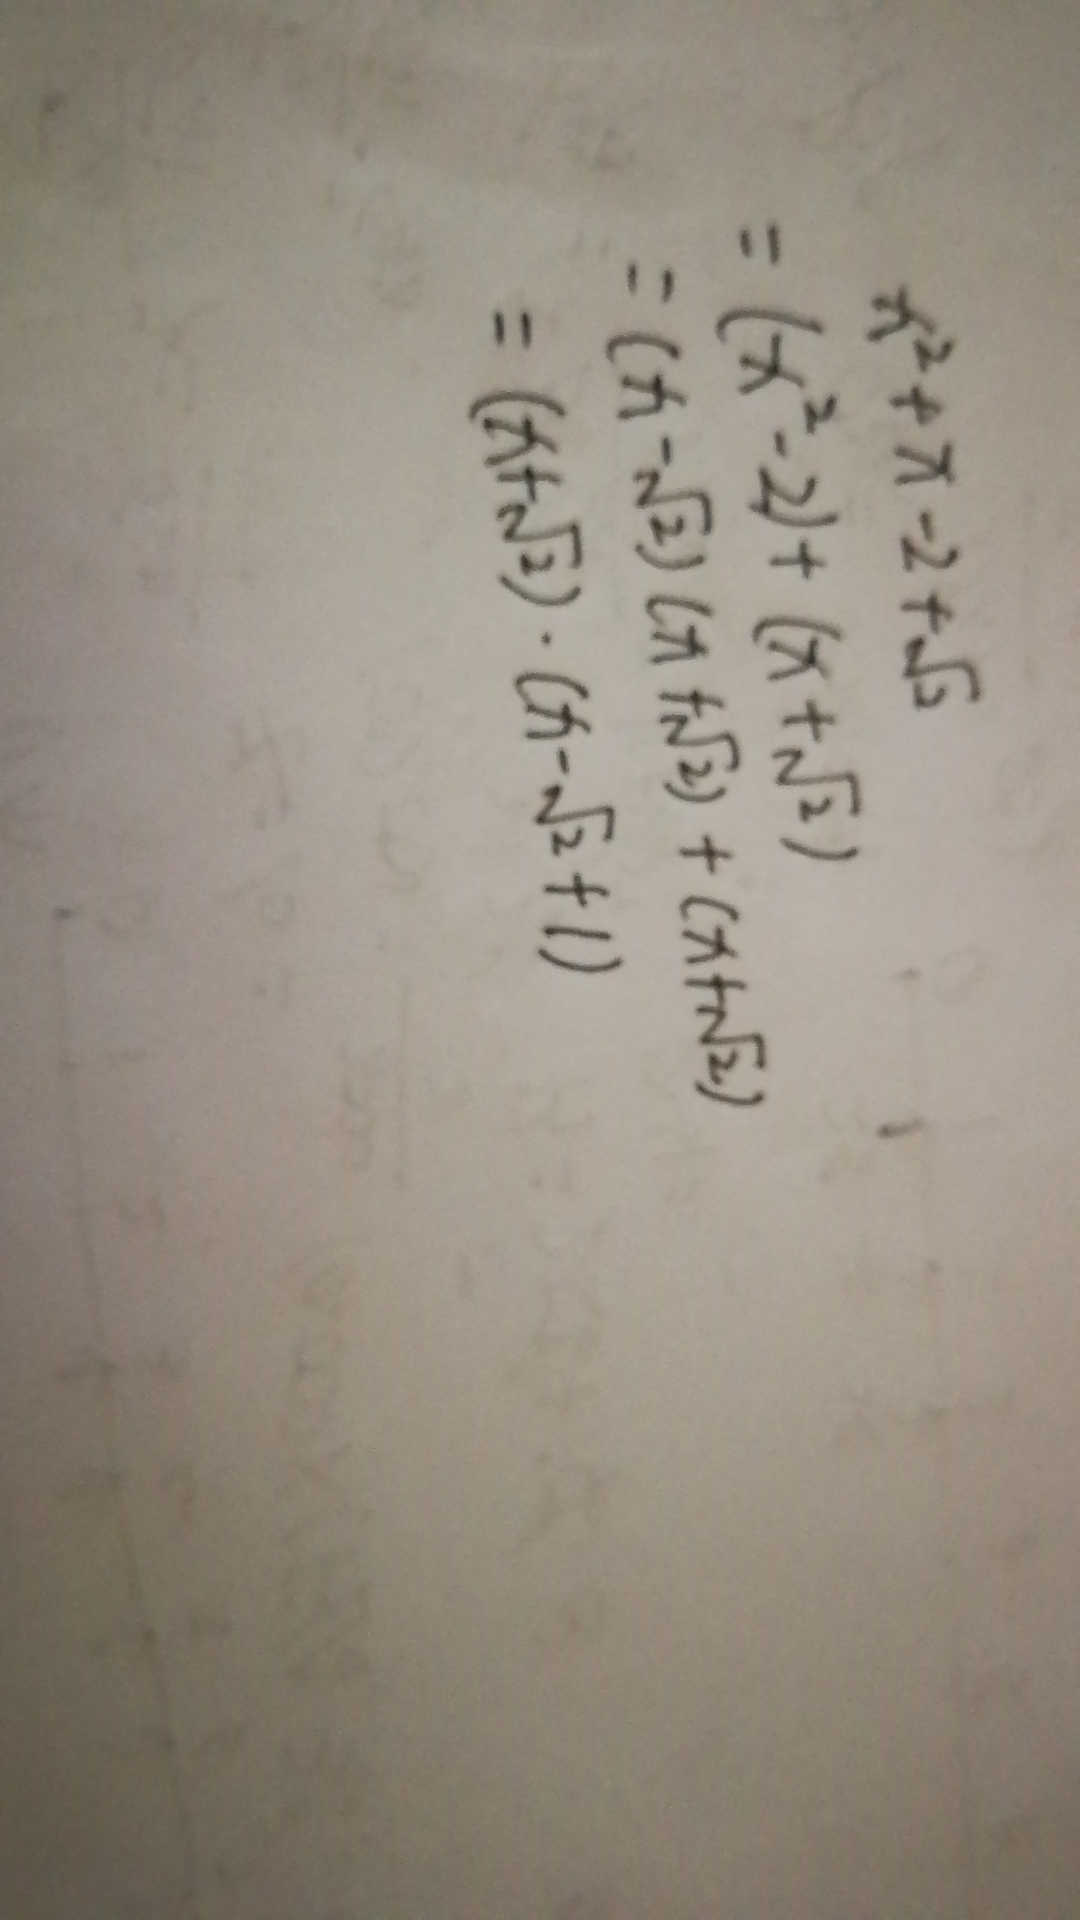 x²+x-2+√2
=(x²-2)+(x+√2)
=(x-√2)(x+√2)+(x+√2)
=(x+√2)·(x-√2+1)